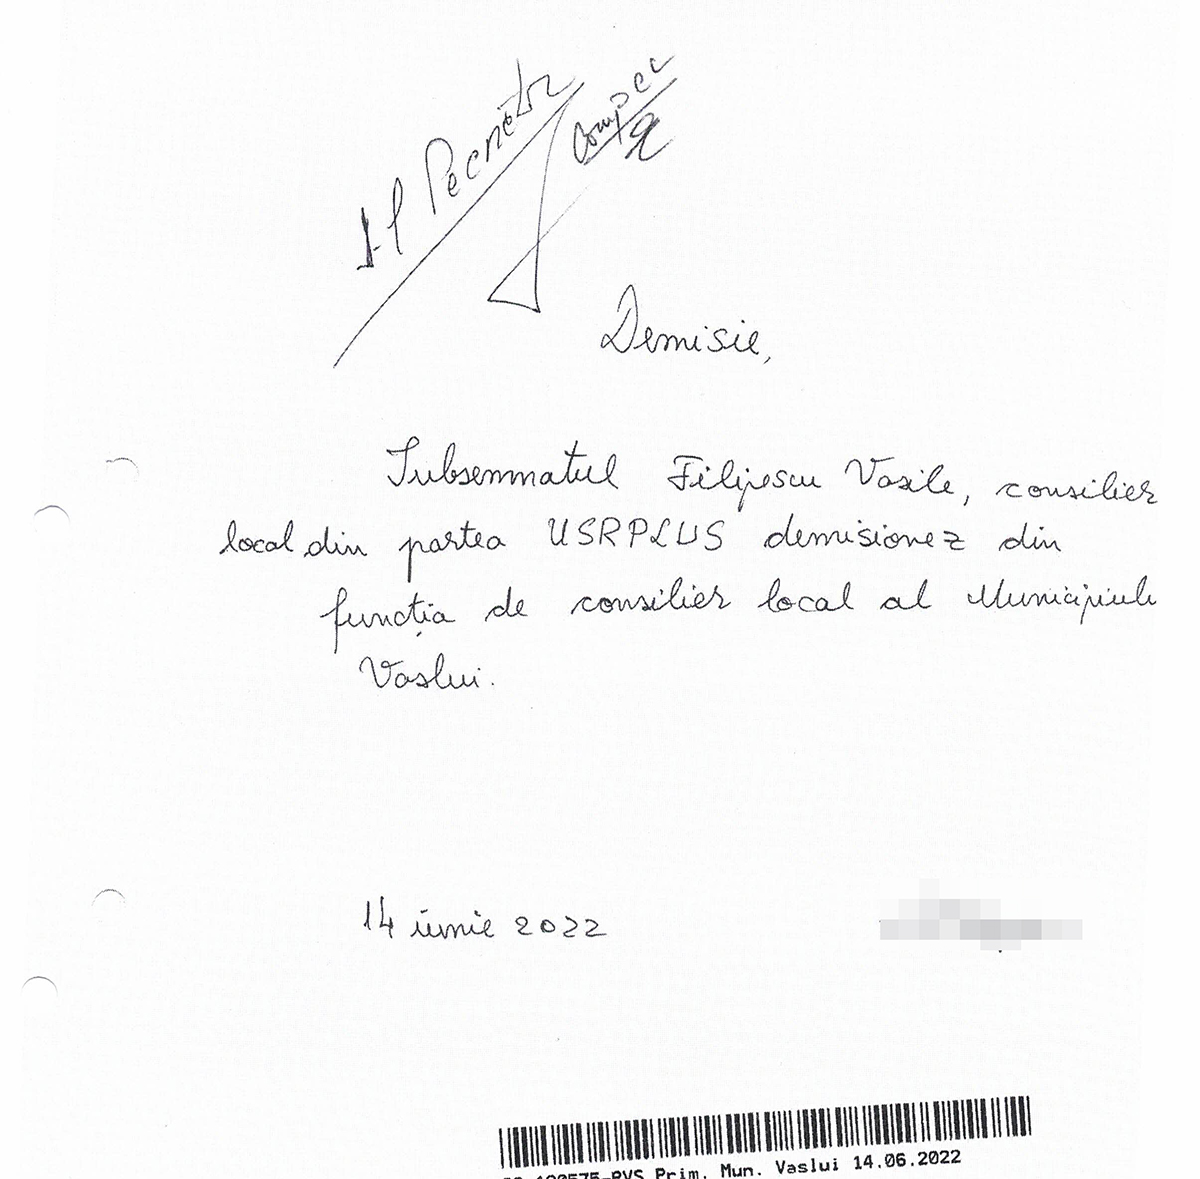 Demisie,
Subsemnatul Filipescu Vasile, consilier
local din partea USRPLUS demisionez din
funcția de consilier local al Municipiul
Vaslui.
14 iunie 2022
Prim. Mun. Vaslui 14.06.2022